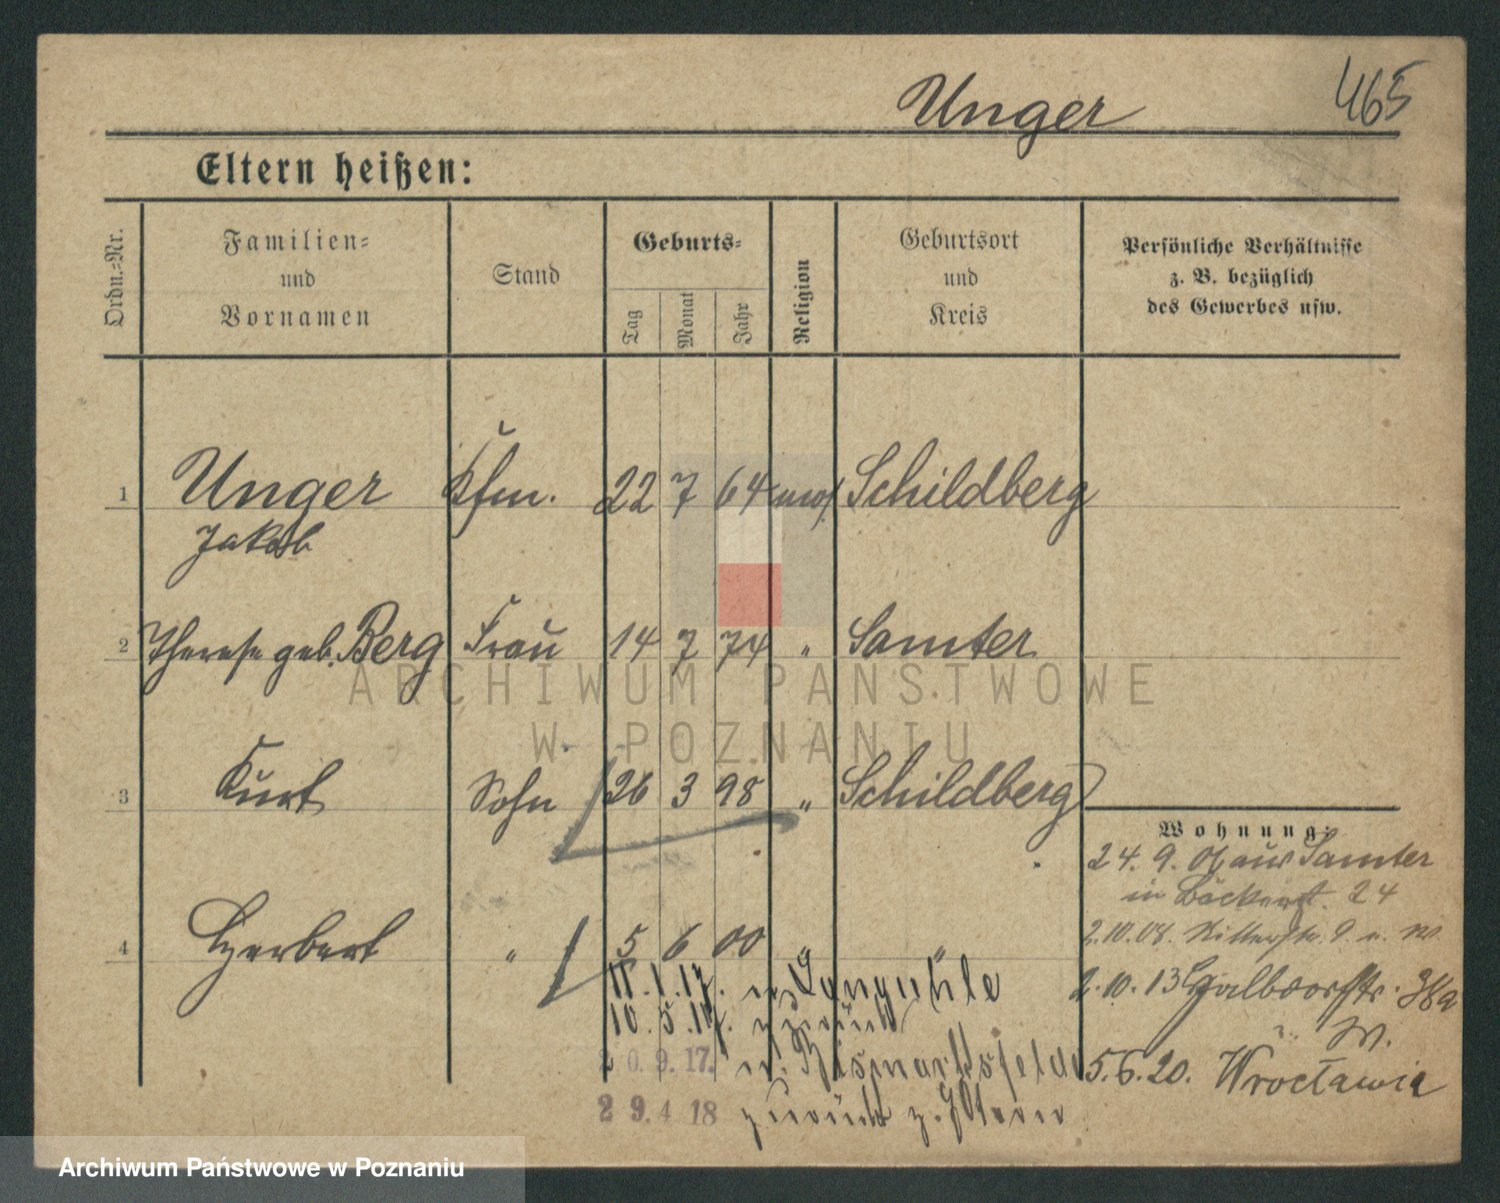 Unger
465
Eltern heißen:
Ordn.-Nr.
Familien-
und
Vornamen
Stand
Geburts-
Tag
Monat
Jahr
Religion
Geburtsort
und
Kreis
Persönliche Verhältnisse
z. B. bezüglich
des Gewerbes usw.
1 Unger Kfm. 22 7 64 mos. Schildberg
Jakob
2 Therese geb. Berg Frau 14 7 74 " Samter
ARCHIWUM PAŃSTWOWE
W POZNANIU
3 Kurt Sohn 26 3 98 " Schildberg
4 Herbert " 5 6 00 " "
11.1.17. n. Languhle
10.5.17. zurück
20.9.17. n. Bismarksfelde
29.4 18 zurück z. Eltern
Wohnung:
24. 9. 07 aus Samter
in Bäckerst. 24
2.10.08. Ritterstr. 9. n. W.
2.10.13
W.
5.6.20. Wrocławia
Archiwum Państwowe w Poznaniu